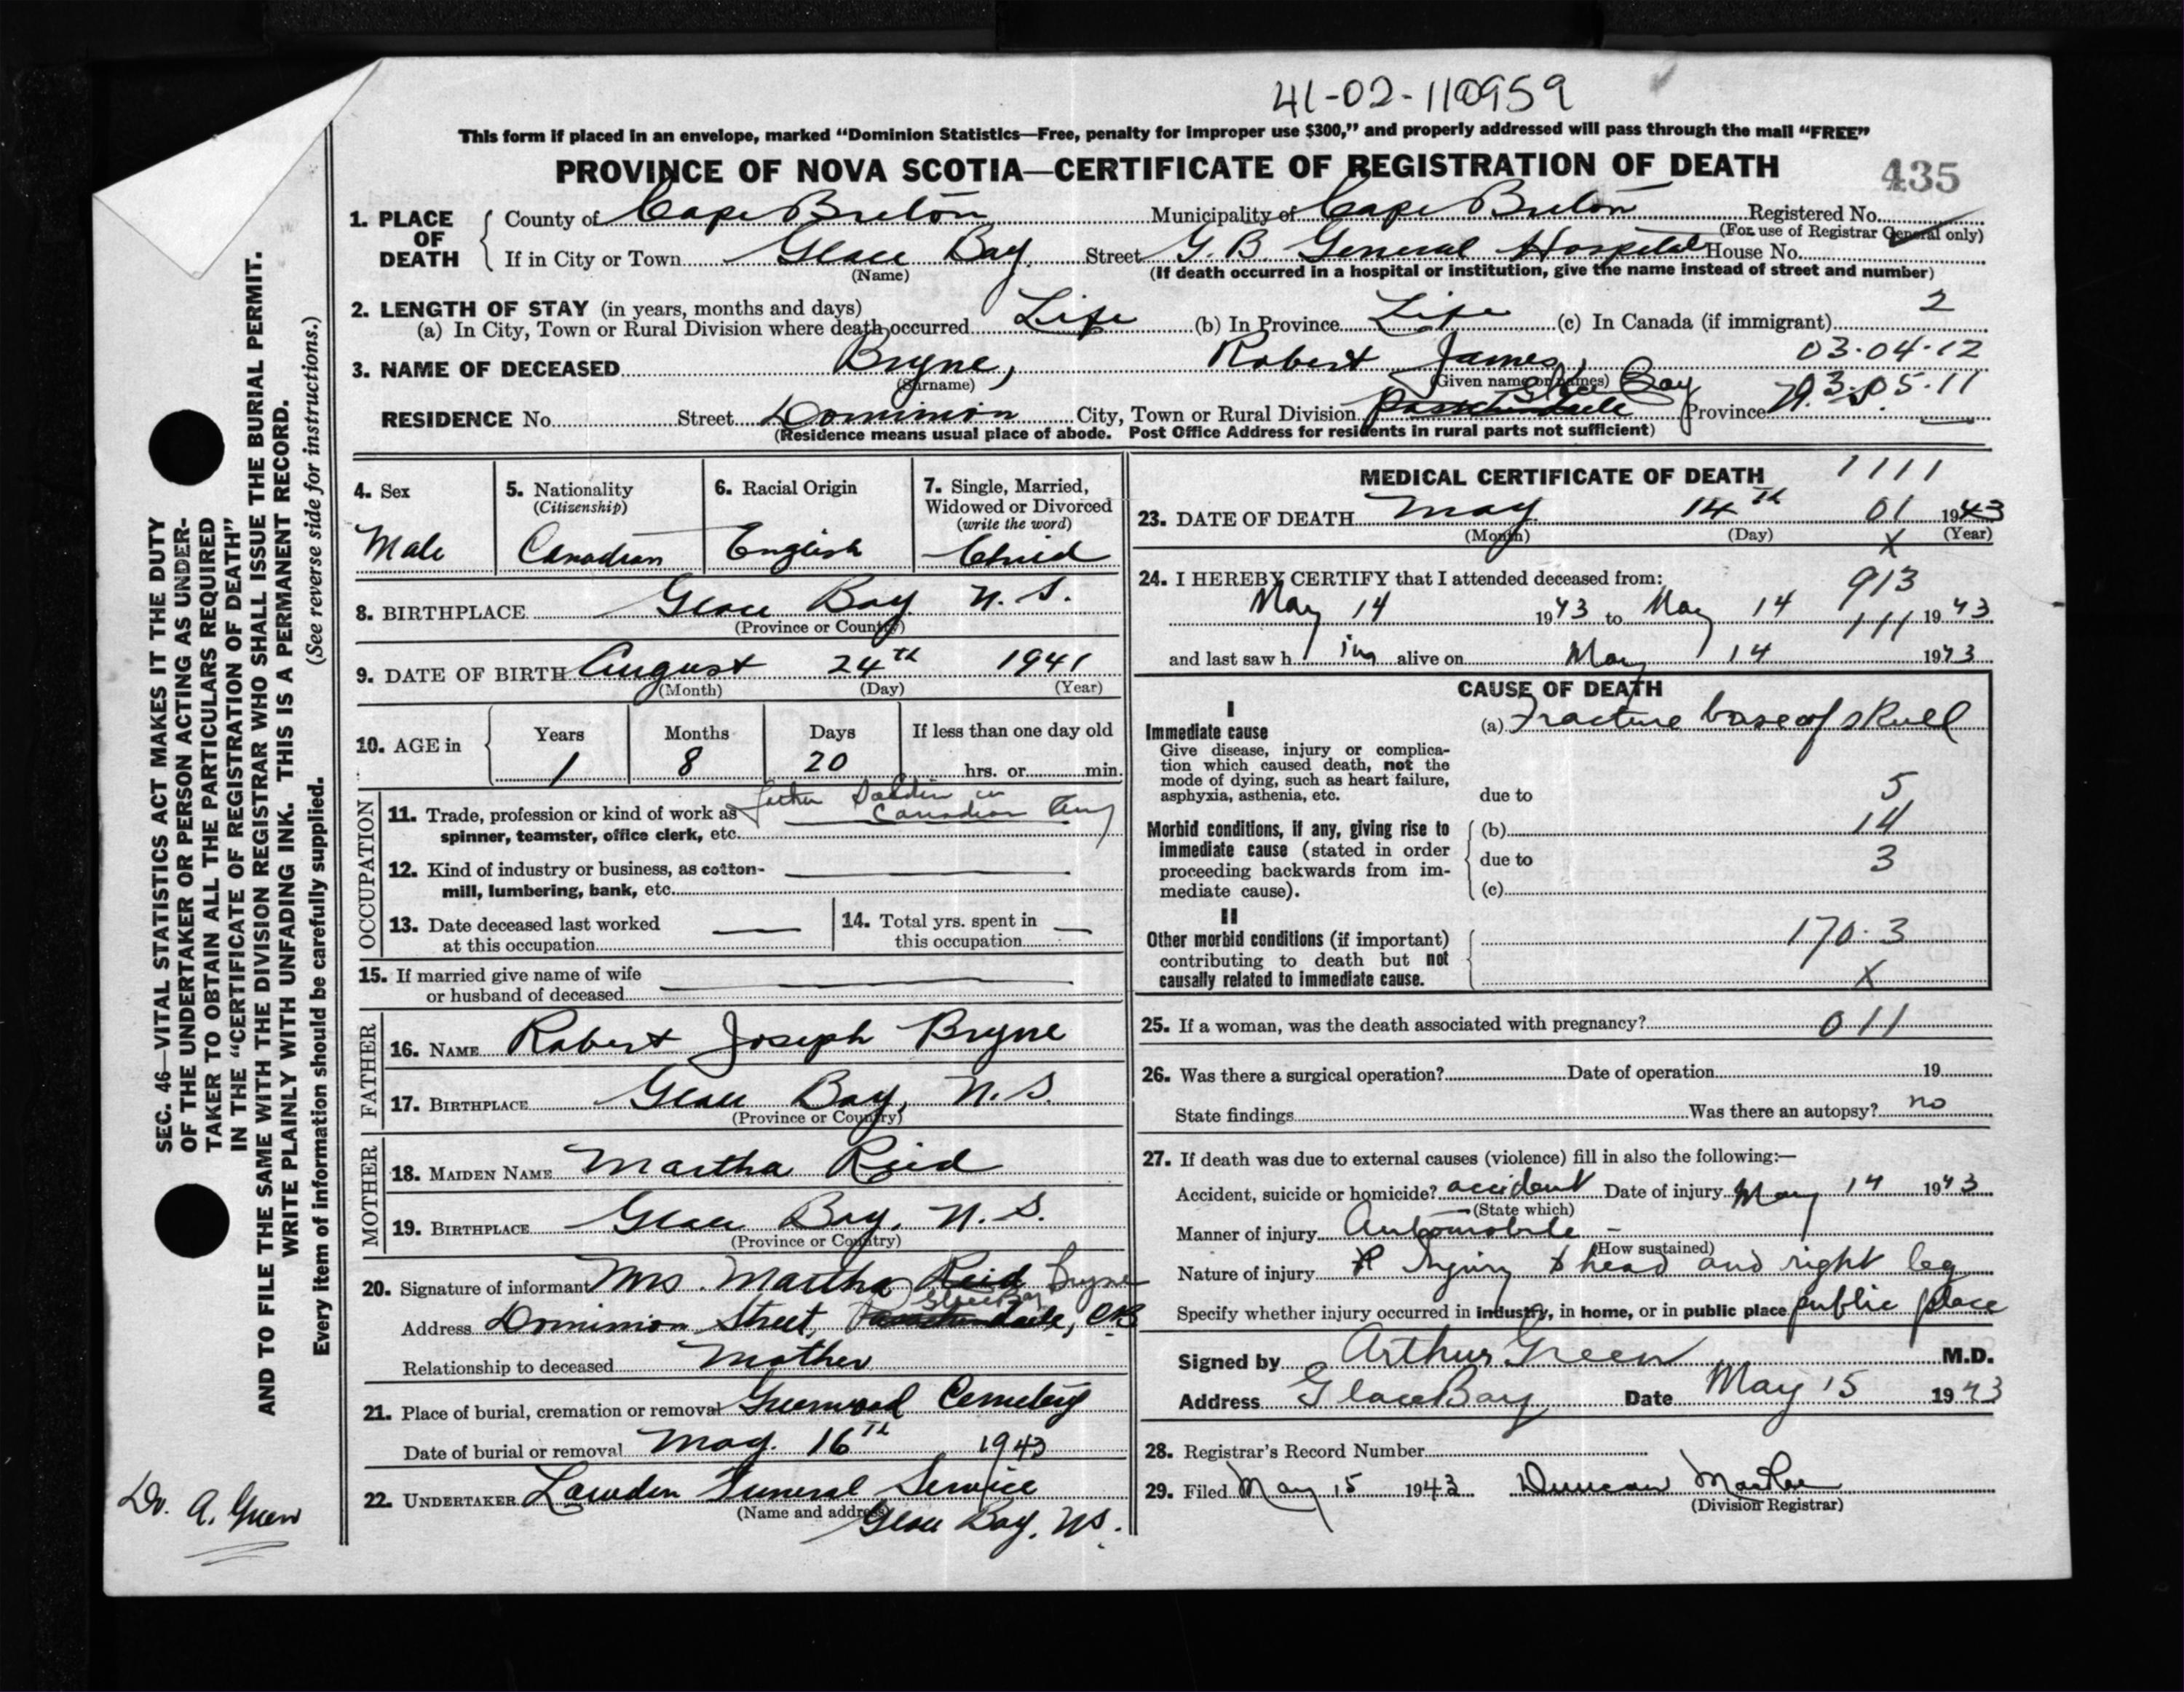 41-02-110959
This form if placed in an envelope, marked “Dominion Statistics—Free, penalty for improper use $300,” and properly addressed will pass through the mail “FREE”
PROVINCE OF NOVA SCOTIA—CERTIFICATE OF REGISTRATION OF DEATH 435
1. PLACE OF DEATH County of Cape Breton Municipality of Cape Breton Registered No.
(For use of Registrar General only)
If in City or Town Glace Bay Street G.B. General Hospital House No.
(Name) (If death occurred in a hospital or institution, give the name instead of street and number)
2. LENGTH OF STAY (in years, months and days) 2
(a) In City, Town or Rural Division where death occurred Life (b) In Province Life (c) In Canada (if immigrant)
03-04-12
3. NAME OF DECEASED Bryne, Robert James,
(Surname) (Given name or names)
Glace Bay 03-05-11
RESIDENCE No. Street Dominion City, Town or Rural Division Passchendaele Province N.S.
(Residence means usual place of abode. Post Office Address for residents in rural parts not sufficient)
4. Sex Male
5. Nationality (Citizenship) Canadian
6. Racial Origin English
7. Single, Married, Widowed or Divorced (write the word) Child
8. BIRTHPLACE Glace Bay N.S.
(Province or Country)
9. DATE OF BIRTH August 24th 1941
(Month) (Day) (Year)
10. AGE in Years Months Days If less than one day old
1 8 20 hrs. or min.
OCCUPATION
11. Trade, profession or kind of work as spinner, teamster, office clerk, etc. father Soldier in Canadian Army
12. Kind of industry or business, as cotton-mill, lumbering, bank, etc.
13. Date deceased last worked at this occupation
14. Total yrs. spent in this occupation
15. If married give name of wife or husband of deceased
FATHER
16. NAME Robert Joseph Bryne
17. BIRTHPLACE Glace Bay, N.S.
(Province or Country)
MOTHER
18. MAIDEN NAME Martha Reid
19. BIRTHPLACE Glace Bay, N.S.
(Province or Country)
20. Signature of informant Mrs. Martha Reid Bryne
Glace Bay
Address Dominion Street, Passchendaele, CB
Relationship to deceased Mother
21. Place of burial, cremation or removal Greenwood Cemetery
Date of burial or removal May 16th 1943
22. UNDERTAKER Lawden Funeral Service
(Name and address) Glace Bay, NS.
MEDICAL CERTIFICATE OF DEATH 1111
23. DATE OF DEATH May 14th 01 1943
(Month) (Day) (Year)
X
24. I HEREBY CERTIFY that I attended deceased from: 913
May 14 1943 to May 14 1943
111
and last saw him alive on May 14 1943
CAUSE OF DEATH
I
Immediate cause (a) Fracture base of skull
Give disease, injury or complication which caused death, not the mode of dying, such as heart failure, asphyxia, asthenia, etc.
due to 5
Morbid conditions, if any, giving rise to immediate cause (stated in order proceeding backwards from immediate cause).
(b) 14
due to 3
(c)
II
Other morbid conditions (if important) contributing to death but not causally related to immediate cause.
170.3
X
25. If a woman, was the death associated with pregnancy? 011
26. Was there a surgical operation? Date of operation 19
State findings Was there an autopsy? no
27. If death was due to external causes (violence) fill in also the following:—
Accident, suicide or homicide? accident Date of injury May 14 1943
(State which)
Manner of injury Automobile -
(How sustained)
Nature of injury Injury to head and right leg
Specify whether injury occurred in industry, in home, or in public place public place
Signed by Arthur Green M.D.
Address Glace Bay Date May 15 1943
28. Registrar's Record Number
29. Filed May 15 1943 Duncan
(Division Registrar)
SEC. 46—VITAL STATISTICS ACT MAKES IT THE DUTY
OF THE UNDERTAKER OR PERSON ACTING AS UNDER-
TAKER TO OBTAIN ALL THE PARTICULARS REQUIRED
IN THE “CERTIFICATE OF REGISTRATION OF DEATH”
AND TO FILE THE SAME WITH THE DIVISION REGISTRAR WHO SHALL ISSUE THE BURIAL PERMIT.
WRITE PLAINLY WITH UNFADING INK. THIS IS A PERMANENT RECORD.
Every item of information should be carefully supplied. (See reverse side for instructions.)
Dr. A. Green